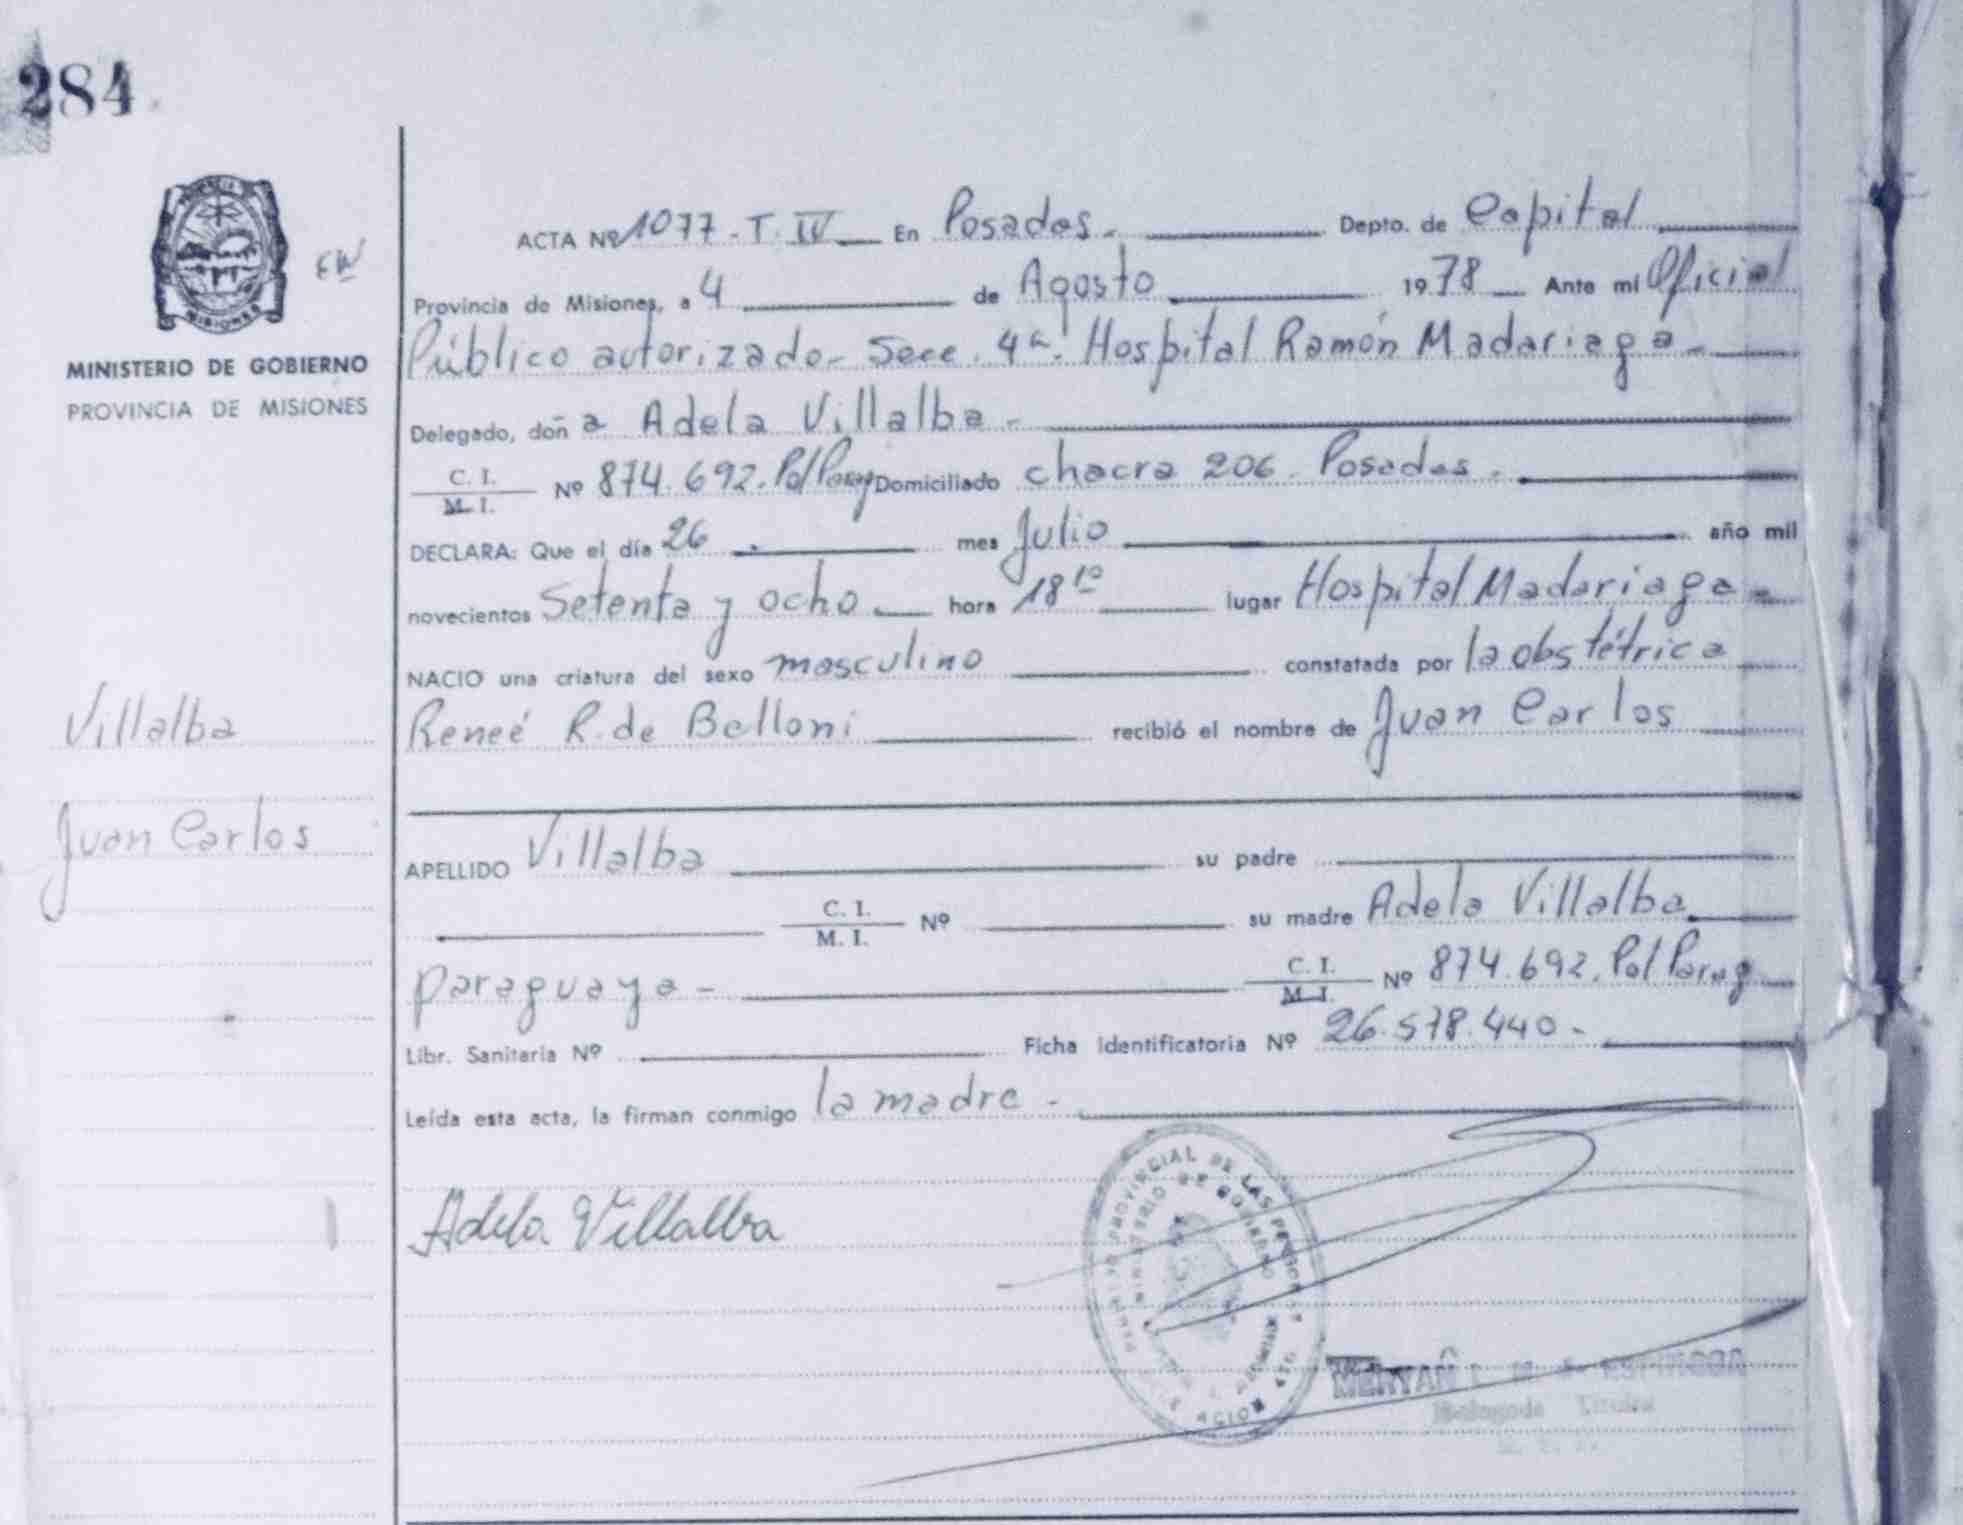 284
MISIONES
EW
MINISTERIO DE GOBIERNO
PROVINCIA DE MISIONES
Villalba
Juan Carlos
ACTA Nº 1077 - T. IV En Posadas - Depto. de Capital
Provincia de Misiones, a 4 de Agosto 1978 Ante mí Oficial
Público autorizado - Secc. 4ª. Hospital Ramón Madariaga -
Delegado, doña Adela Villalba -
C. I.
M. I. Nº 874.692. Pol Parag Domiciliado chacra 206. Posadas -
DECLARA: Que el día 26 . mes Julio año mil
novecientos Setenta y ocho hora 18 10 lugar Hospital Madariaga -
NACIO una criatura del sexo masculino constatada por la obstétrica
Reneé R. de Belloni recibió el nombre de Juan Carlos
APELLIDO Villalba su padre
C. I.
M. I. Nº su madre Adela Villalba
paraguaya - C. I.
M. I. Nº 874.692. Pol Parag
Libr. Sanitaria Nº Ficha Identificatoria Nº 26.578.440 -
Leída esta acta, la firman conmigo la madre -
Adela Villalba
PROVINCIAL DE LAS PERSONAS
MINISTERIO DE GOBIERNO
ESPINOSA
Delegada Titular